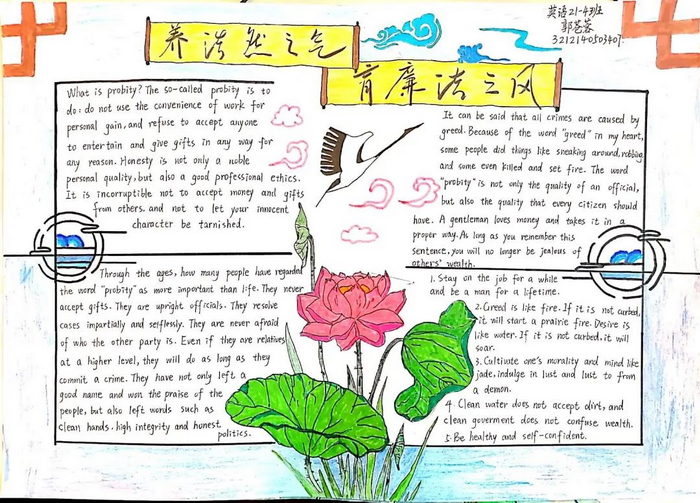 英语21-4班
郭苍蓉
3212140503407
养浩然之气
育廉洁之风
What is probity? The so-called probity is to
do: do not use the convenience of work for
personal gain, and refuse to accept anyone
to entertain and give gifts in any way for
any reason. Honesty is not only a noble
personal quality, but also a good professional ethics.
It is incorruptible not to accept money and gifts
from others. and not to let your innocent
character be tarnished.
Through the ages, how many people have regarded
the word "probity" as more important than life. They never
accept gifts. They are upright officials. They resolve
cases impartially and selflessly. They are never afraid
of who the other party is. Even if they are relatives
at a higher level, they will do as long as they
commit a crime. They have not only left a
good name and won the praise of the
people, but also left words such as
clean hands, high integrity and honest
politics.
It can be said that all crimes are caused by
greed. Because of the word "greed" in my heart,
some people did things like sneaking around, robbing,
and some even killed and set fire. The word
"probity" is not only the quality of an official,
but also the quality that every citizen should
have. A gentleman loves money and takes it in a
proper way. As long as you remember this
sentence, you will no longer be jealous of
others' wealth.
1. Stay on the job for a while
and be a man for a lifetime.
2. Greed is like fire. If it is not curbed,
it will start a prairie fire. Desire is
like water. If it is not curbed, it will
soar.
3. Cultivate one's morality and mind like
jade, indulge in lust and lust to from
a demon.
4. Clean water does not accept dirt, and
clean goverment does not confuse wealth.
5. Be healthy and self-confident.